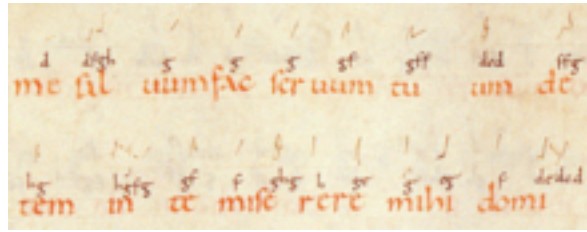 d dfgh g g g gf gff ded ffg
me sal uum fac ser uum tu um de
hg gf f ghg h g f
tem in te mise rere mihi domi